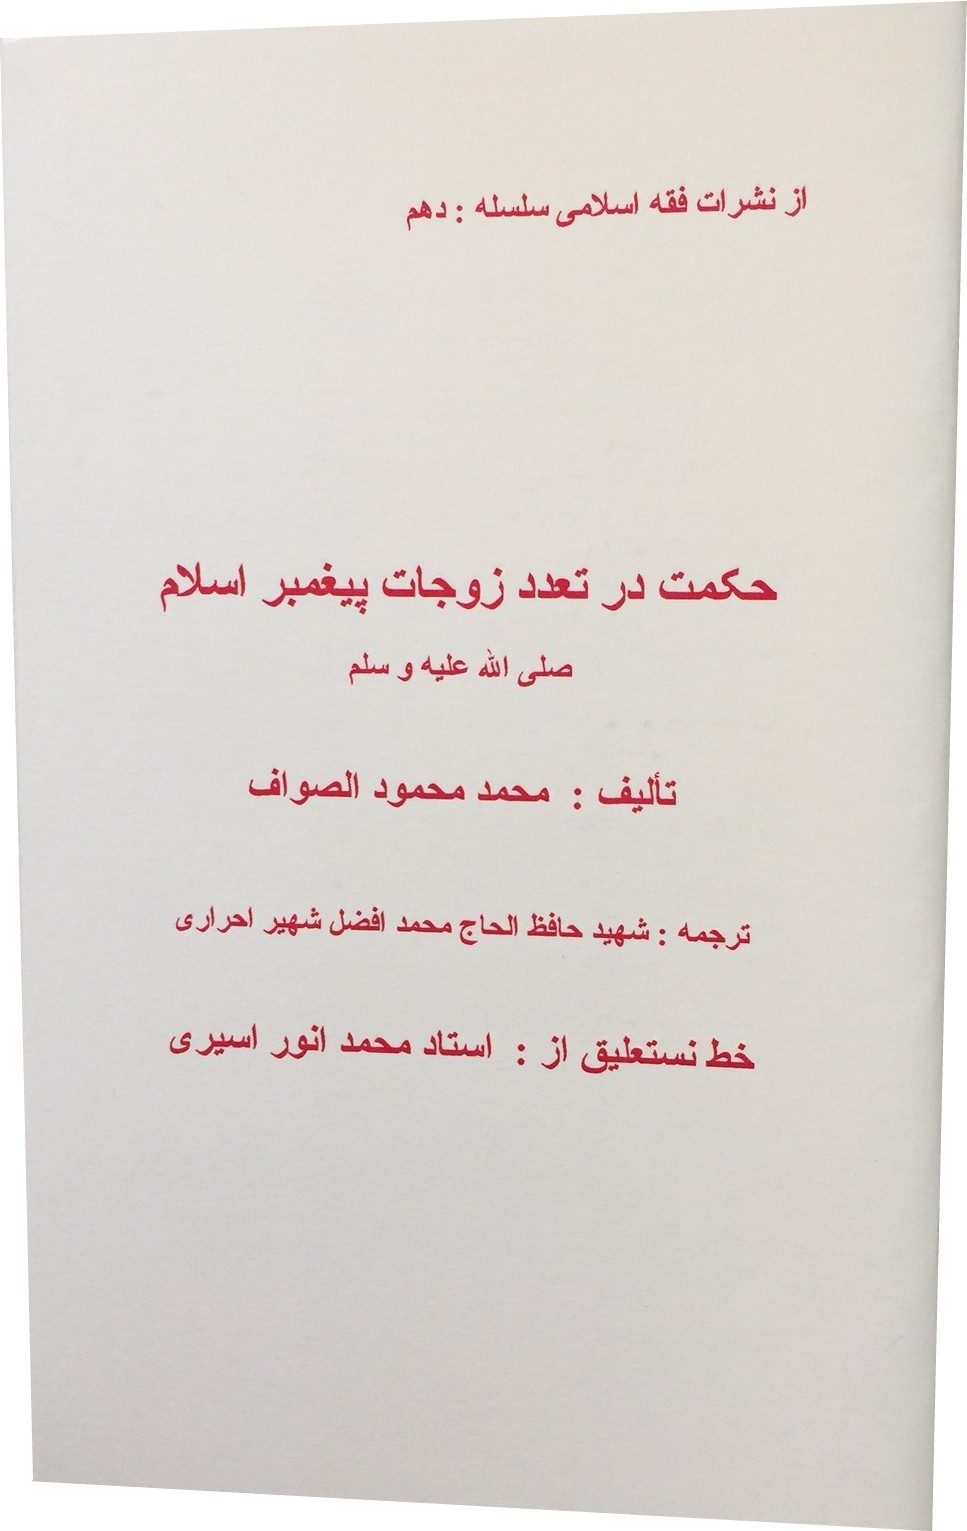 از نشرات فقه اسلامی سلسله : دهم
حکمت در تعدد زوجات پیغمبر اسلام
صلی الله علیه و سلم
تألیف : محمد محمود الصواف
ترجمه : شهید حافظ الحاج محمد افضل شهیر احراری
خط نستعلیق از : استاد محمد انور اسیری